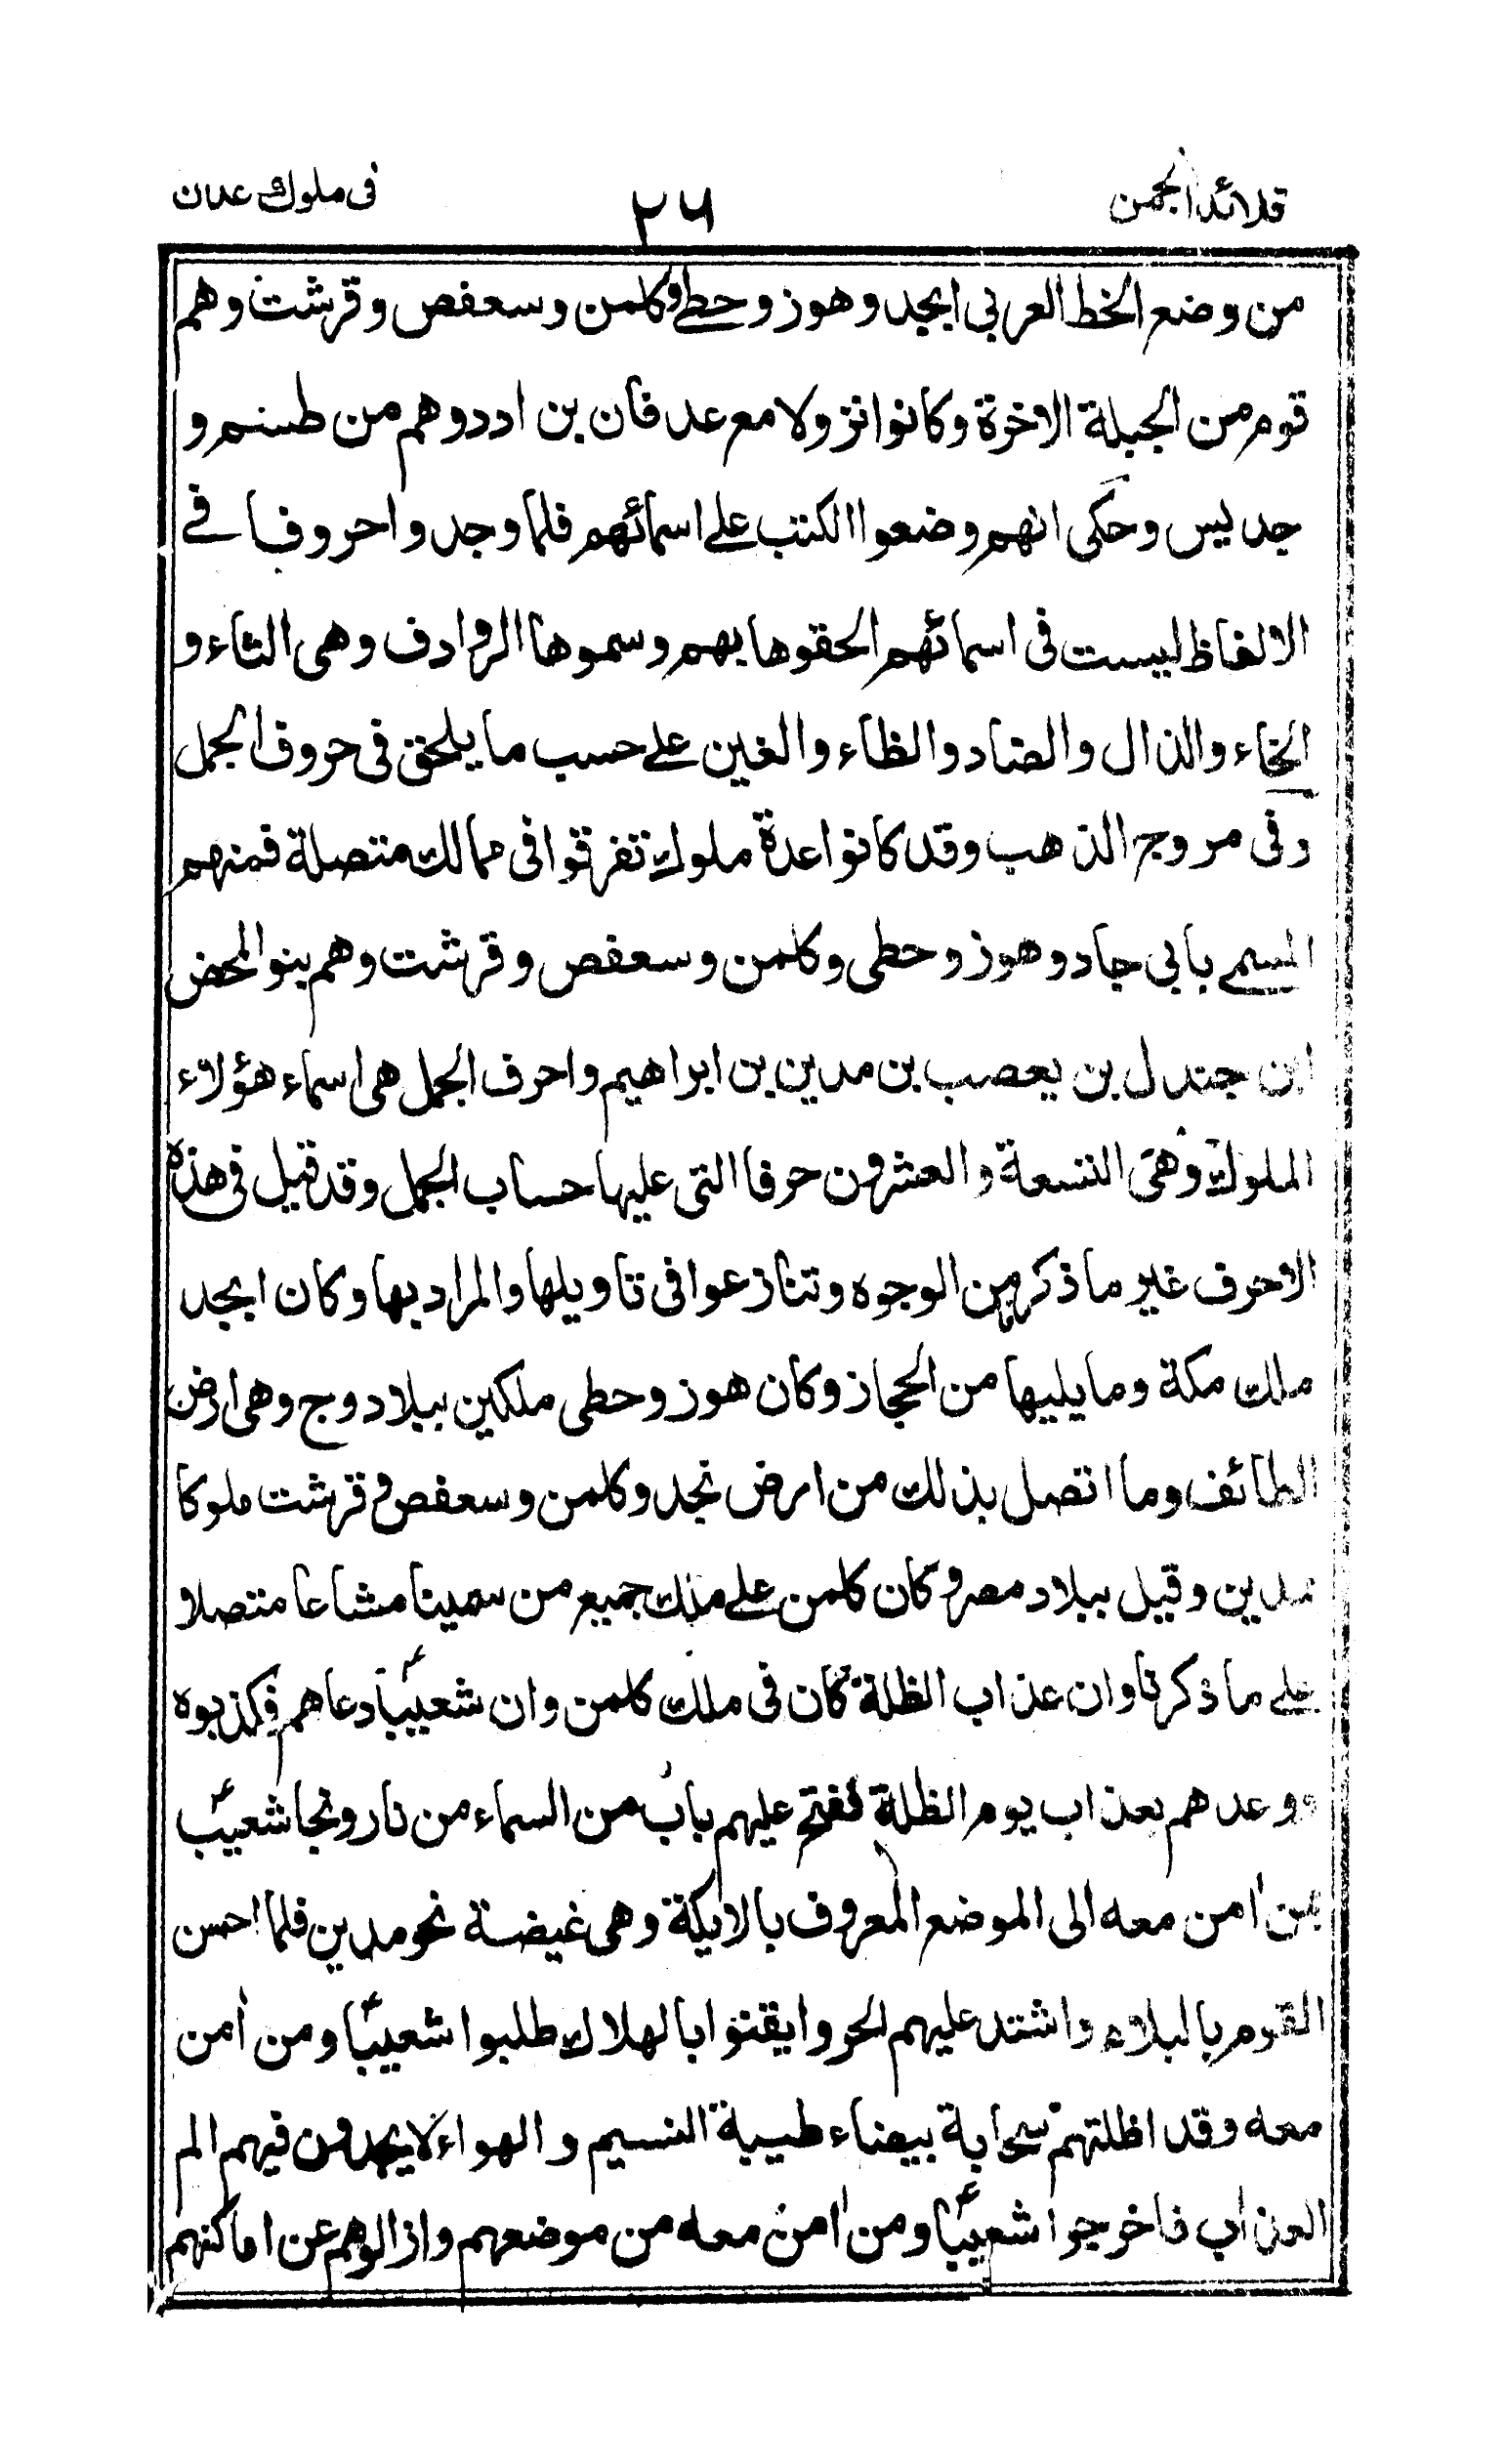 قلائد الجمن
٢٦
فى ملوك عدن
من وضع الخط العربي ابجد وهوز وحطے وكلمن وسعفص وقرشت وهم
قوم من الجبلة الاخرة وكانوا نزولا مع عدفان بن ادد وهم من طسم و
جديس وحكى انهم وضعوا الكتب علے اسمائهم فلما وجدوا حروفا فے
الالفاظ ليست فى اسمائهم الحقوها بهم وسموها الروادف وهى الثاء و
الخاء والذال والضاد والظاء والغين علے حسب ما يلحق فى حروف الجمل
وفى مروج الذهب وقد كانوا عدة ملوك تفرقوا فى ممالك متصلة فمنهم
المسمے بابى جاد وهوز وحطى وكلمن وسعفص وقرشت وهم بنو المحض
ابن جندل بن يعصب بن مدين بن ابراهيم واحرف الجمل هى اسماء هؤلاء
الملوك وهى التسعة والعشرون حرفا التى عليها حساب الجمل وقد قيل فى هذه
الاحرف غير ما ذكر من الوجوه وتنازعوا فى تاويلها والمراد بها وكان ابجد
ملك مكة وما يليها من الحجاز وكان هوز وحطى ملكين ببلاد وج وهى ارض
الطائف وما اتصل بذلك من ارض نجد وكلمن وسعفص وقرشت ملوكا
بمدين وقيل ببلاد مصر وكان كلمن علے ملك جميع من سمينا مشاعا متصلا
علے ما ذكرنا وان عذاب الظلة كان فى ملك كلمن وان شعيبًا دعاهم فكذبوه
ووعدهم بعذاب يوم الظلة ففتح عليهم باب من السماء من نار ونجا شعيب
بمن اٰمن معه الى الموضع المعروف بالايكة وهى غيضة نحو مدين فلما احسن
القوم بالبلاء واشتد عليهم الحر وايقنوا بالهلاك طلبوا شعيبًا ومن اٰمن
معه وقد اظلتهم سحابة بيضاء طيبة النسيم والهواء لا يجدون فيهم الم
العذاب فاخرجوا شعيبًا ومن اٰمن معه من موضعهم وازالوهم عن اماكنهم